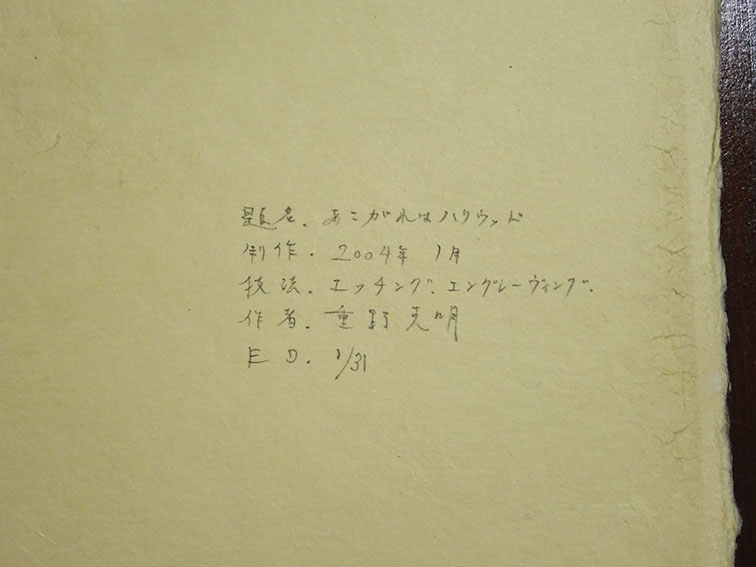 題名. あこがれはハリウッド
制作. 2004年 1月
技法. エッチング、エングレーヴィング.
作者. 重野克明
ED. 1/31